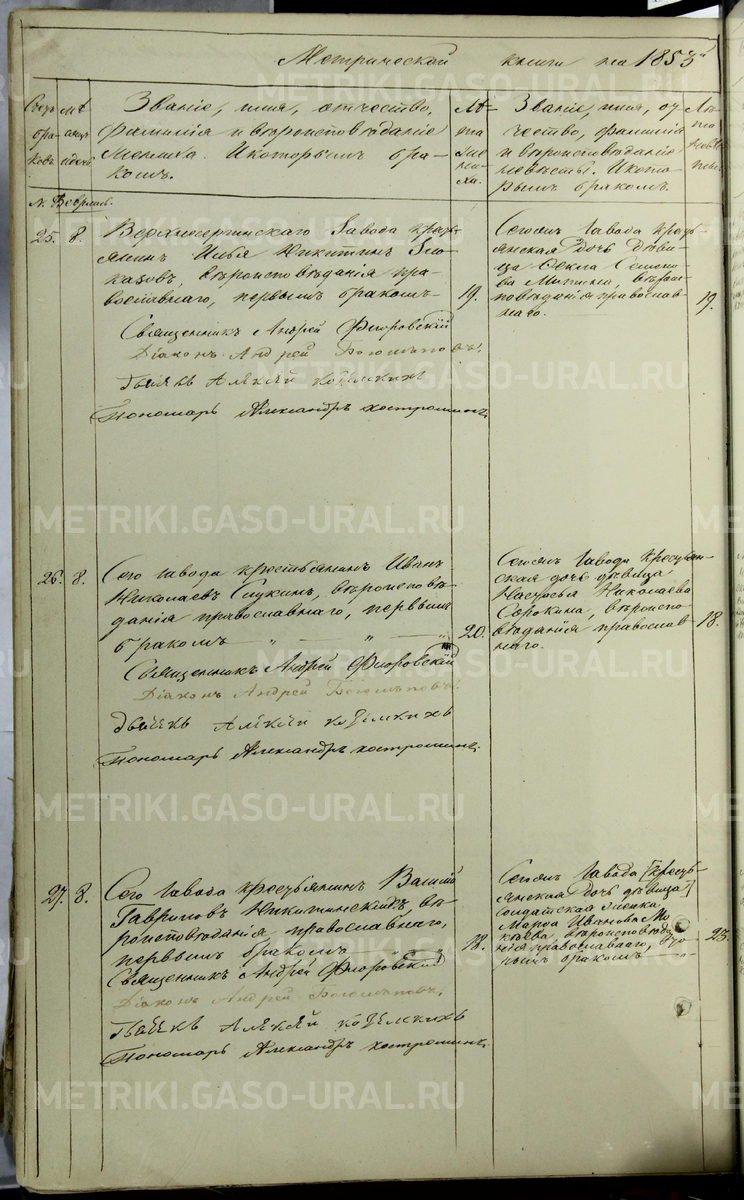 Метрической книги на 1853й
Счетъ бра- ковъ
Мѣ сяцъ и день
Званіе, имя, отчество,
фамилія и вѣроисповѣданіе
жениха. И которымъ бра-
комъ.
Лѣ-
та
же
ни-
ха.
Званіе, имя, от
чество, фамилія
и вѣроисповѣданіе
невѣсты. И кото-
рымъ бракомъ.
Лѣ-
та
невѣс
ты.
Февраль.
25. 8.
Верхнесергинскаго Завода кресть-
янинъ Илья Никитинъ Зло-
казовъ, вѣроисповѣданія пра-
вославнаго, первымъ бракомъ 19.
Священникъ Андрей Флоровскій
Діаконъ Андрей Богомѣловъ.
Дьячекъ Алѣксѣй Козелскихъ
Пономарь Александръ Костроминъ.
Сегожъ Завода кресть-
янская дочь дѣви-
ца Ѳекла Семено-
ва Митина, вѣрои-
повѣданія православ-
наго. 19.
26. 8.
Сего завода крестьянинъ Иванъ
Николаевъ вѣроисповѣ-
данія православнаго, первымъ
бракомъ 20.
Священникъ Андрей Флоровскій
Діаконъ Андрей Богомѣловъ.
Дьячекъ Алѣксѣй Козелскихъ
Пономарь Александръ Костроминъ.
Сегожъ Завода крестьян-
ская дочь дѣвица
Настасья Николаева
Сорокина, вѣроиспо-
вѣданія православ-
наго. 18.
27. 8.
Сего Завода крестьянинъ
Гавриловъ Никитинскихъ, вѣ-
роисповѣданія православнаго,
первымъ бракомъ 18.
Священникъ Андрей Флоровскій
Діаконъ Андрей Богомѣловъ.
Дьячекъ Алѣксѣй Козелскихъ
Пономарь Александръ Костроминъ.
Сегожъ Завода [кресть-
янская дочь дѣвица]
Солдатская женка
Марѳа Иванова Мо
кѣева, вѣроисповѣда
нія православнаго, вто-
рымъ бракомъ 23.
METRIKI.GASO-URAL.RU